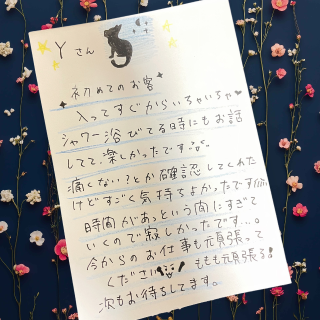 Yさん
初めてのお客
入ってすぐからいちゃいちゃ♥
シャワー浴びてる時にもお話
してて楽しかったです
痛くない?とか確認してくれた
けどすごく気持ちよかったです
時間があっという間にすぎて
いくので寂しかったです…。
今からのお仕事も頑張って
ください ももも頑張る!
次もお待ちしてます。